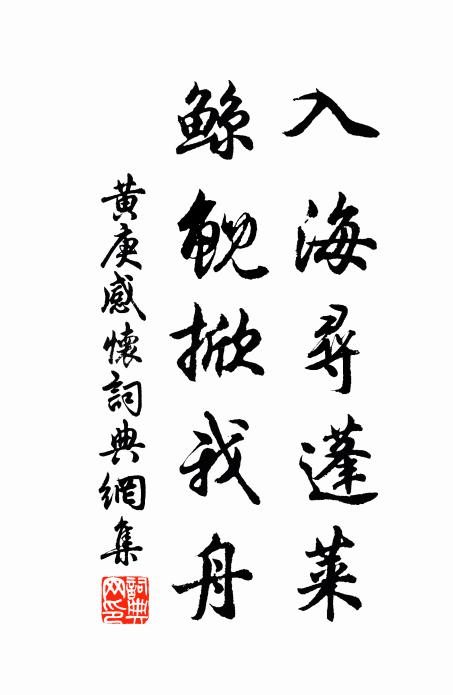 入海尋蓬萊
鲸鲵掀我舟
黄庚感懷詞典網集
詞典
网印